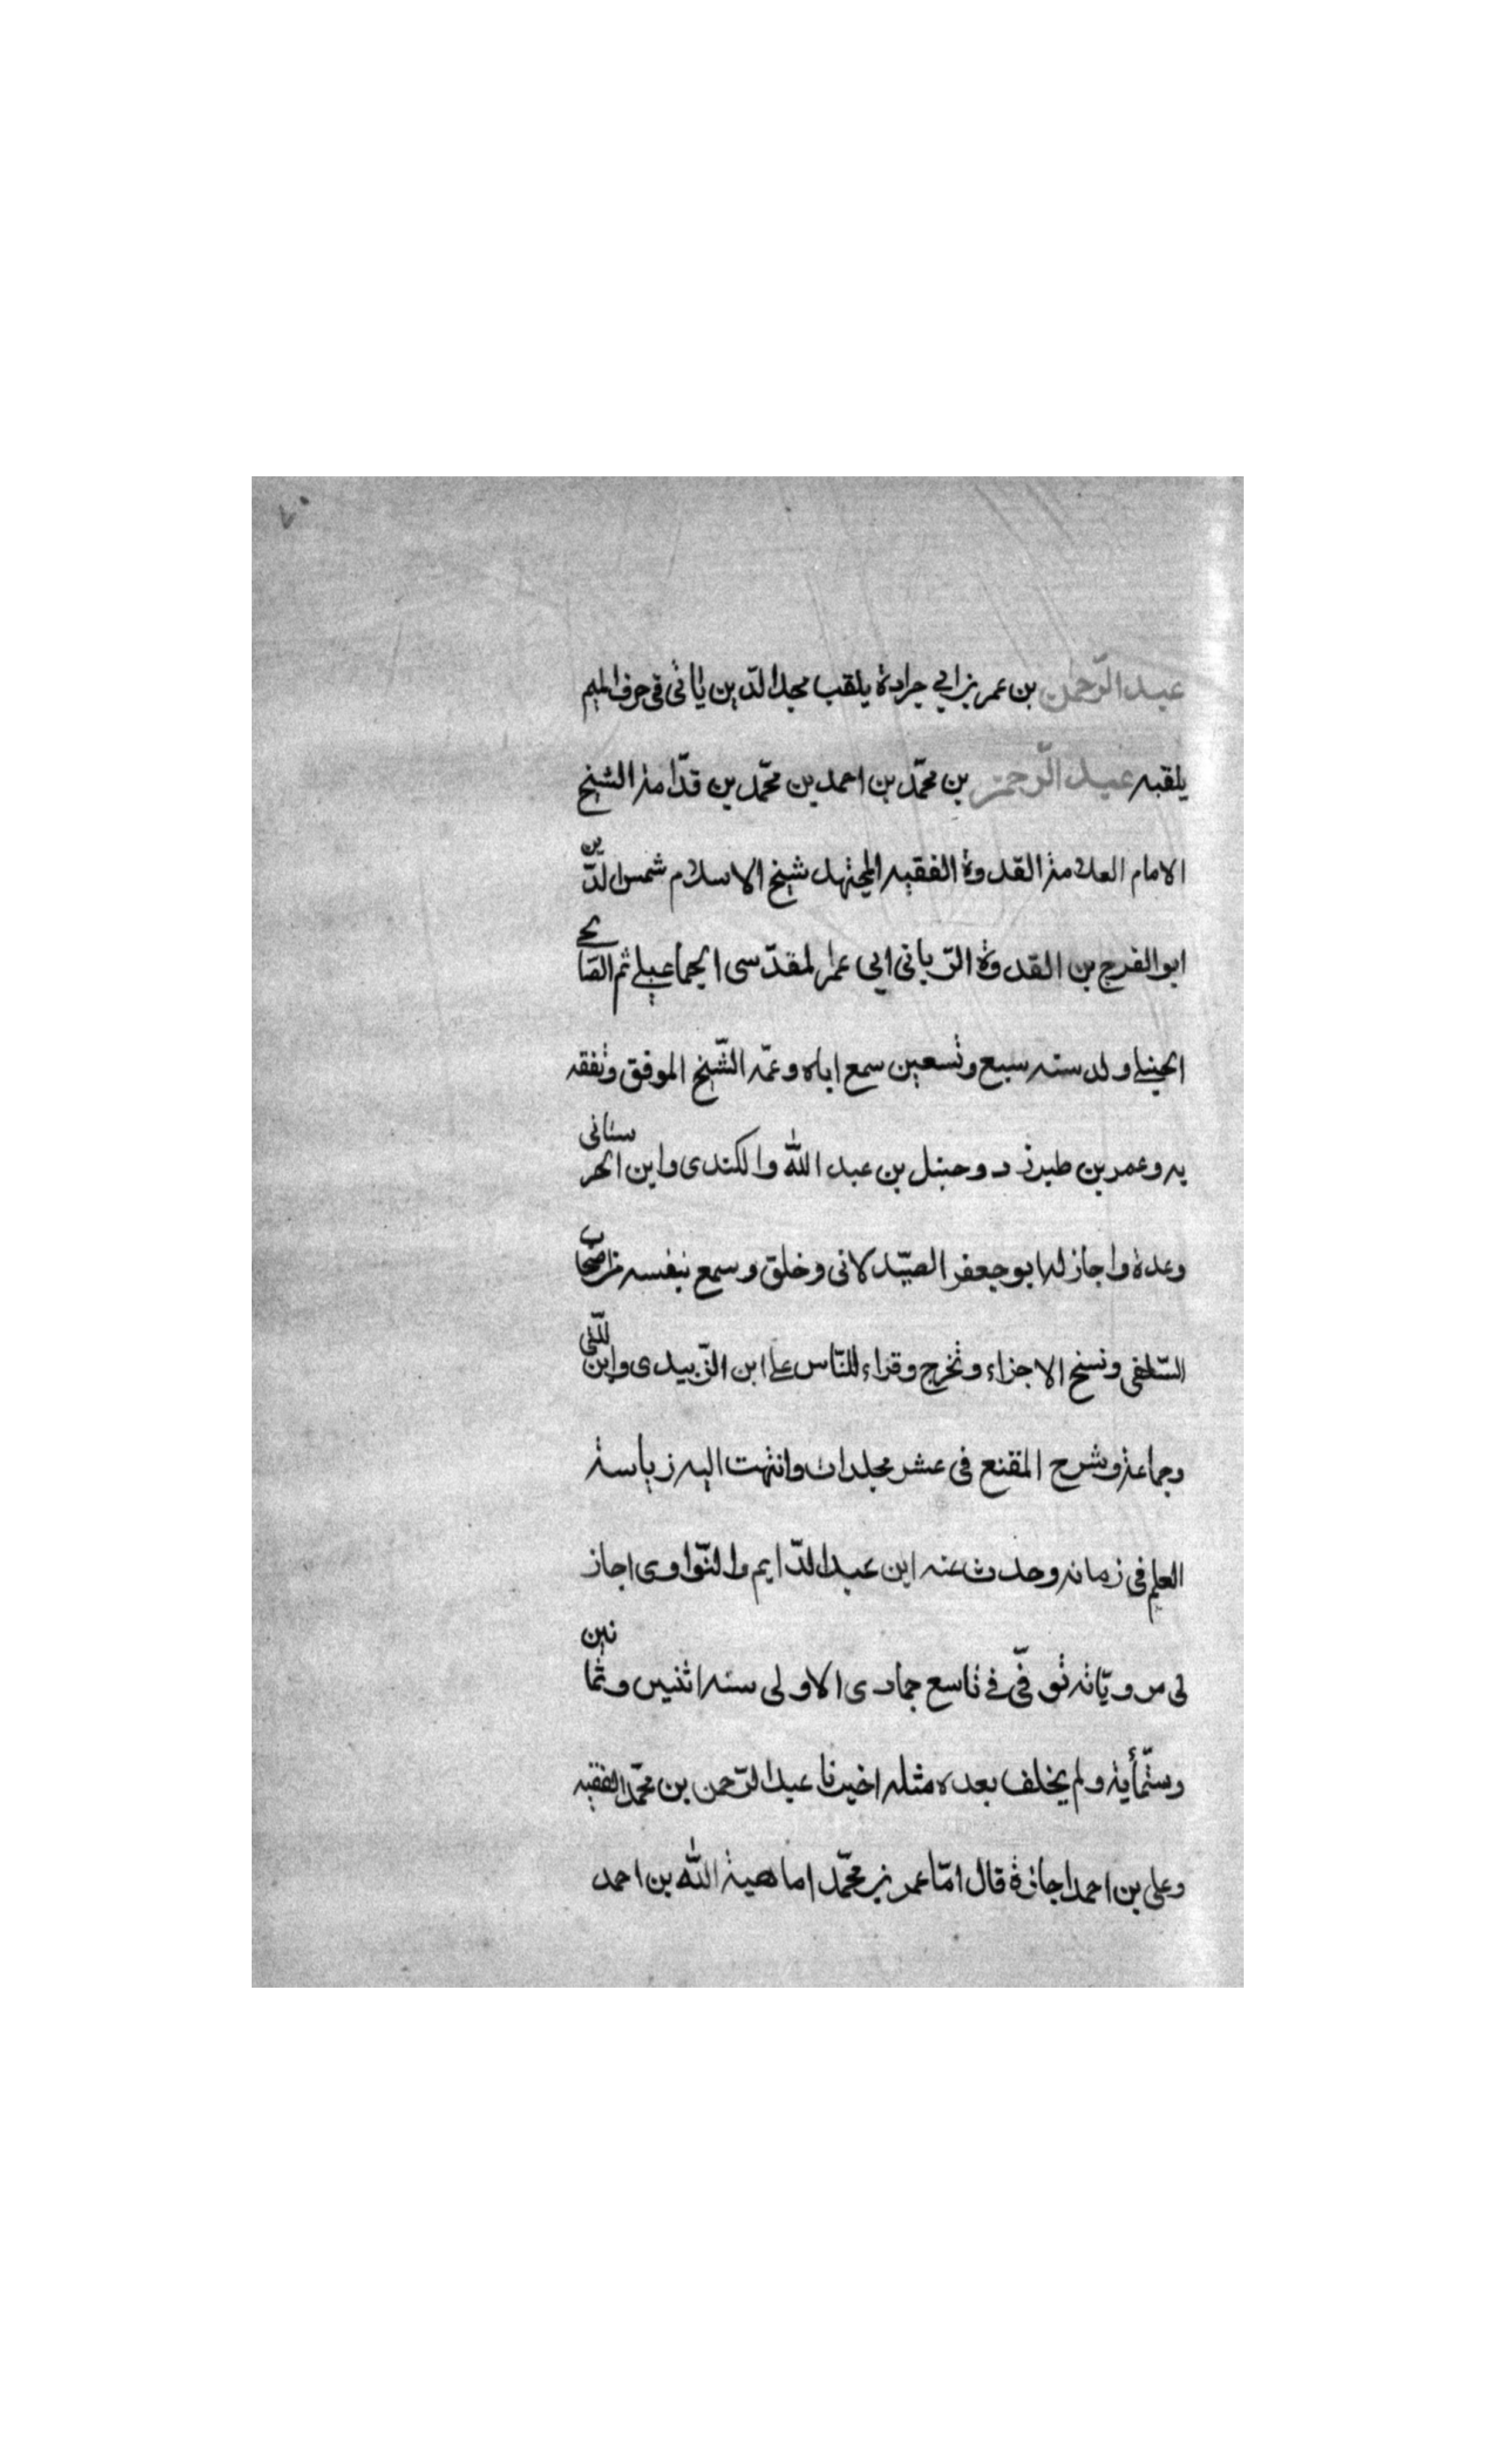 ٧٠
عبد الرّحمن بن عمر بن ابي جرادة يلقب مجد الدّين ياتي في حرف الميم
يلقبه عبد الرّحمن بن محمّد بن احمد بن محمّد بن قدّامة الشيخ
الامام العلامة القدوة الفقيه المجتهد شيخ الاسلام شمس الدّين
ابو الفرج بن القدوة الرّباني ابي عمر المقدّسى الجماعيلي ثم الصّالحي
الحنبلي ولد سنه سبع وتسعين سمع اباه وعمّه الشّيخ الموفق وتفقه
به وعمر بن طبرزد وحنبل بن عبد الله والكندى وابن الحرستانى
وعدة واجاز له ابو جعفر الصيّدلانى وخلق وسمع بنفسه من اصحاب
السّلفى ونسخ الاجزاء وتخرج وقراء للنّاس على ابن الزّبيدى وابن اللّتّي
وجماعة وشرح المقنع فى عشر مجلدات وانتهت اليه رياسة
العلم فى زمانه وحدث عنه ابن عبد الدّايم والنّواوى اجاز
لى مرويّاته توفّي في تاسع جمادى الاولى سنه اثنين وثمانين
وستّمأية ولم يخلف بعده مثله اخبرنا عبد الرّحمن بن محمّد الفقيه
وعلى بن احمد اجازة قال امّا عمر بن محمّد اما هبة الله بن احمد